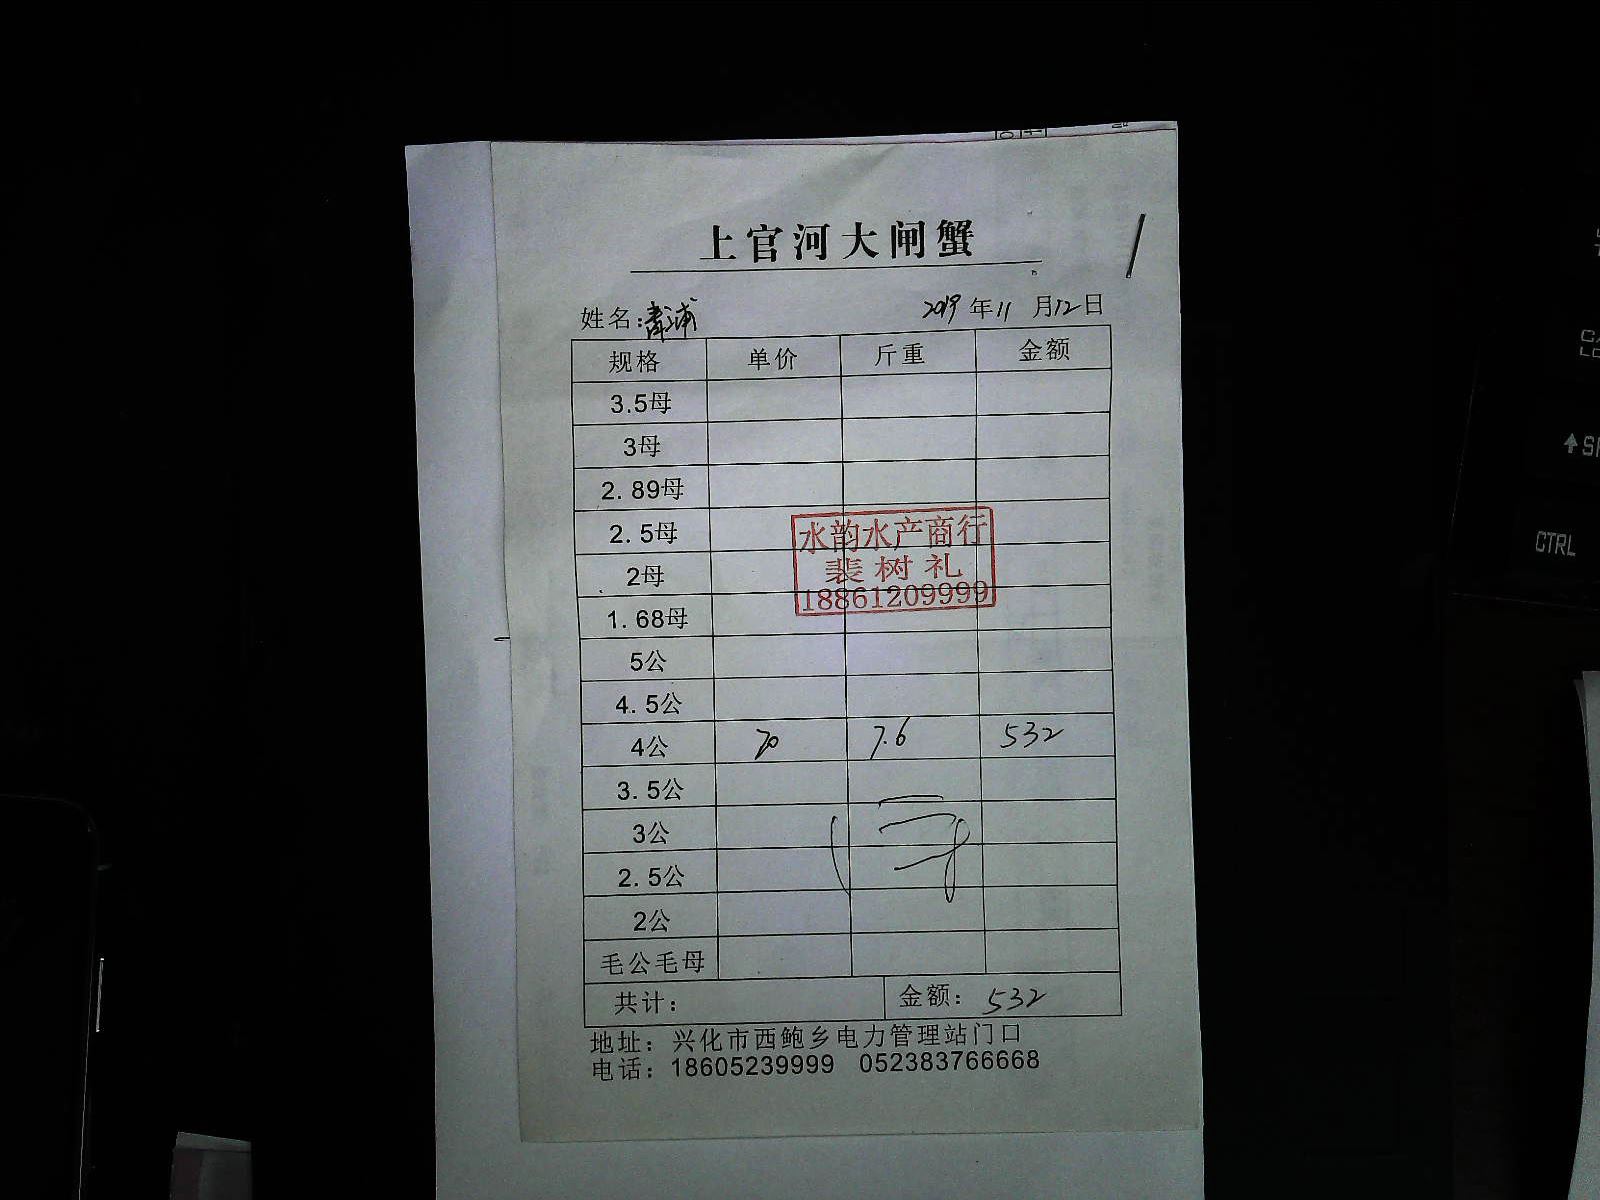 上官河大闸蟹
姓名: 2019年11月12日
规格 单价 斤重 金额
3.5母
3母
2.89母
2.5母
2母
1.68母
5公
4.5公
4公 70 7.6 532
3.5公
3公
2.5公
2公
毛公毛母
共计: 金额: 532
地址: 兴化市西鲍乡电力管理站门口
电话: 18605239999 052383766668
水韵水产商行
裴树礼
18861209999
CTRL